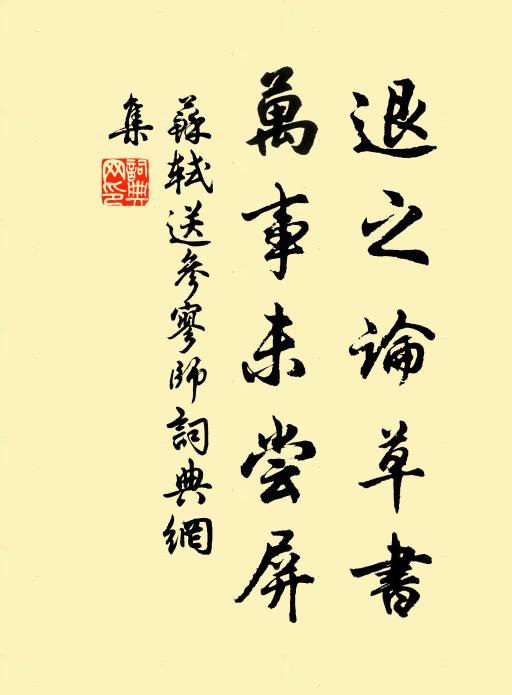 退之論草書
萬事未嘗屏
蘇軾送參寥師詞典網
集
詞典網印